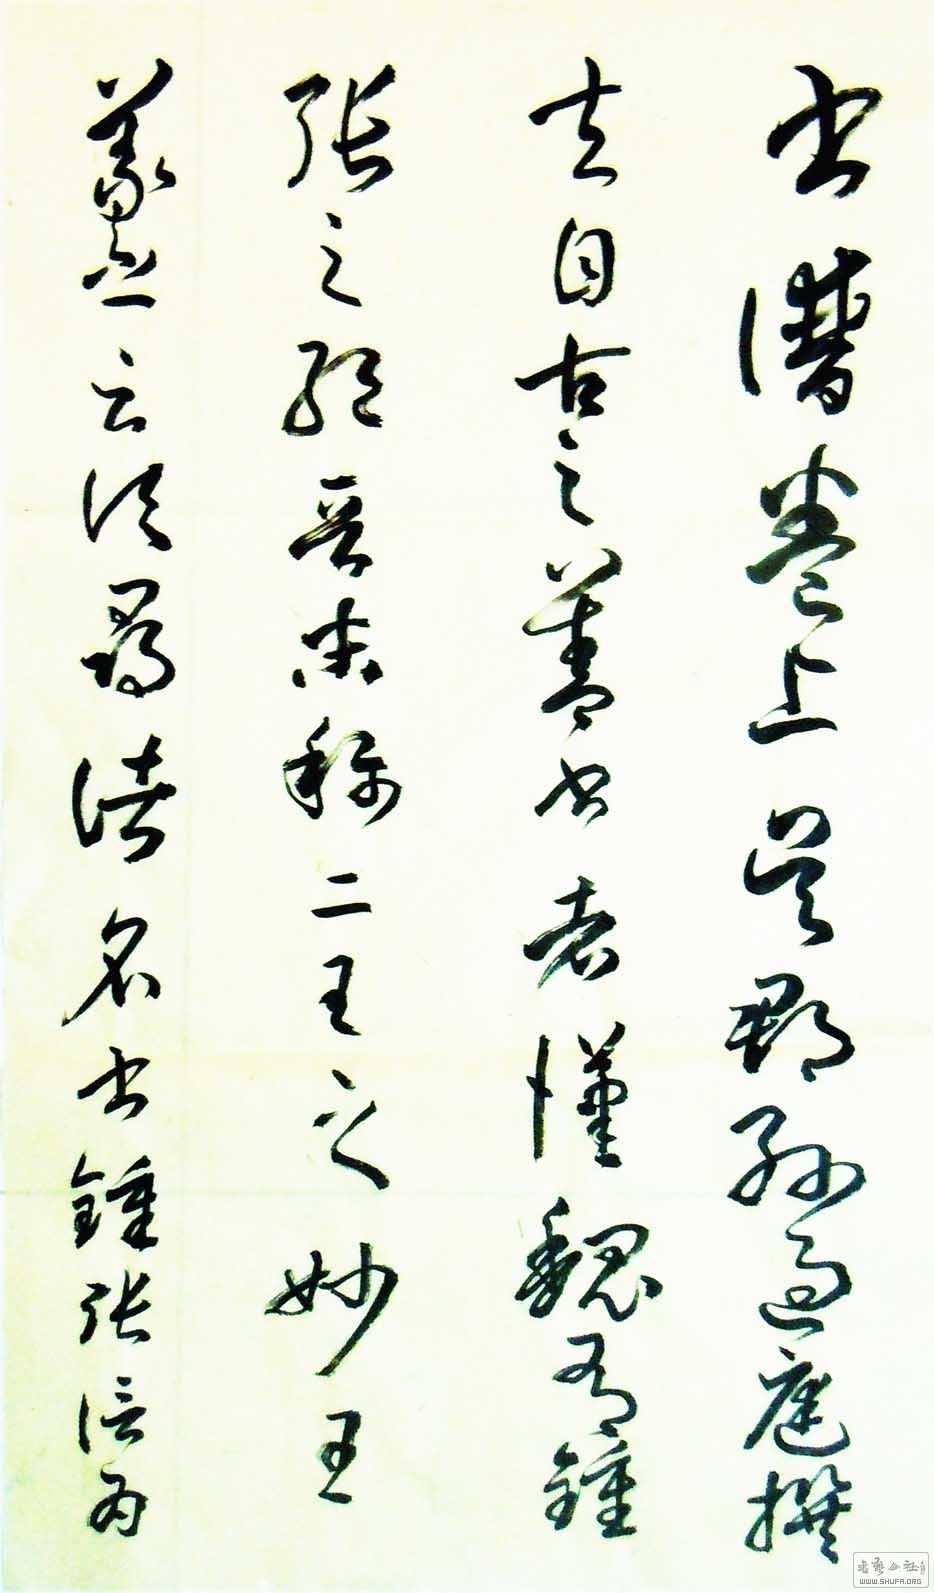 书谱卷上吴郡孙过庭撰
夫自古之善书者汉魏有钟
张之绝晋末称二王之妙王
羲之云顷寻诸名书钟张信为
书艺公社
WWW.SHUFA.ORG